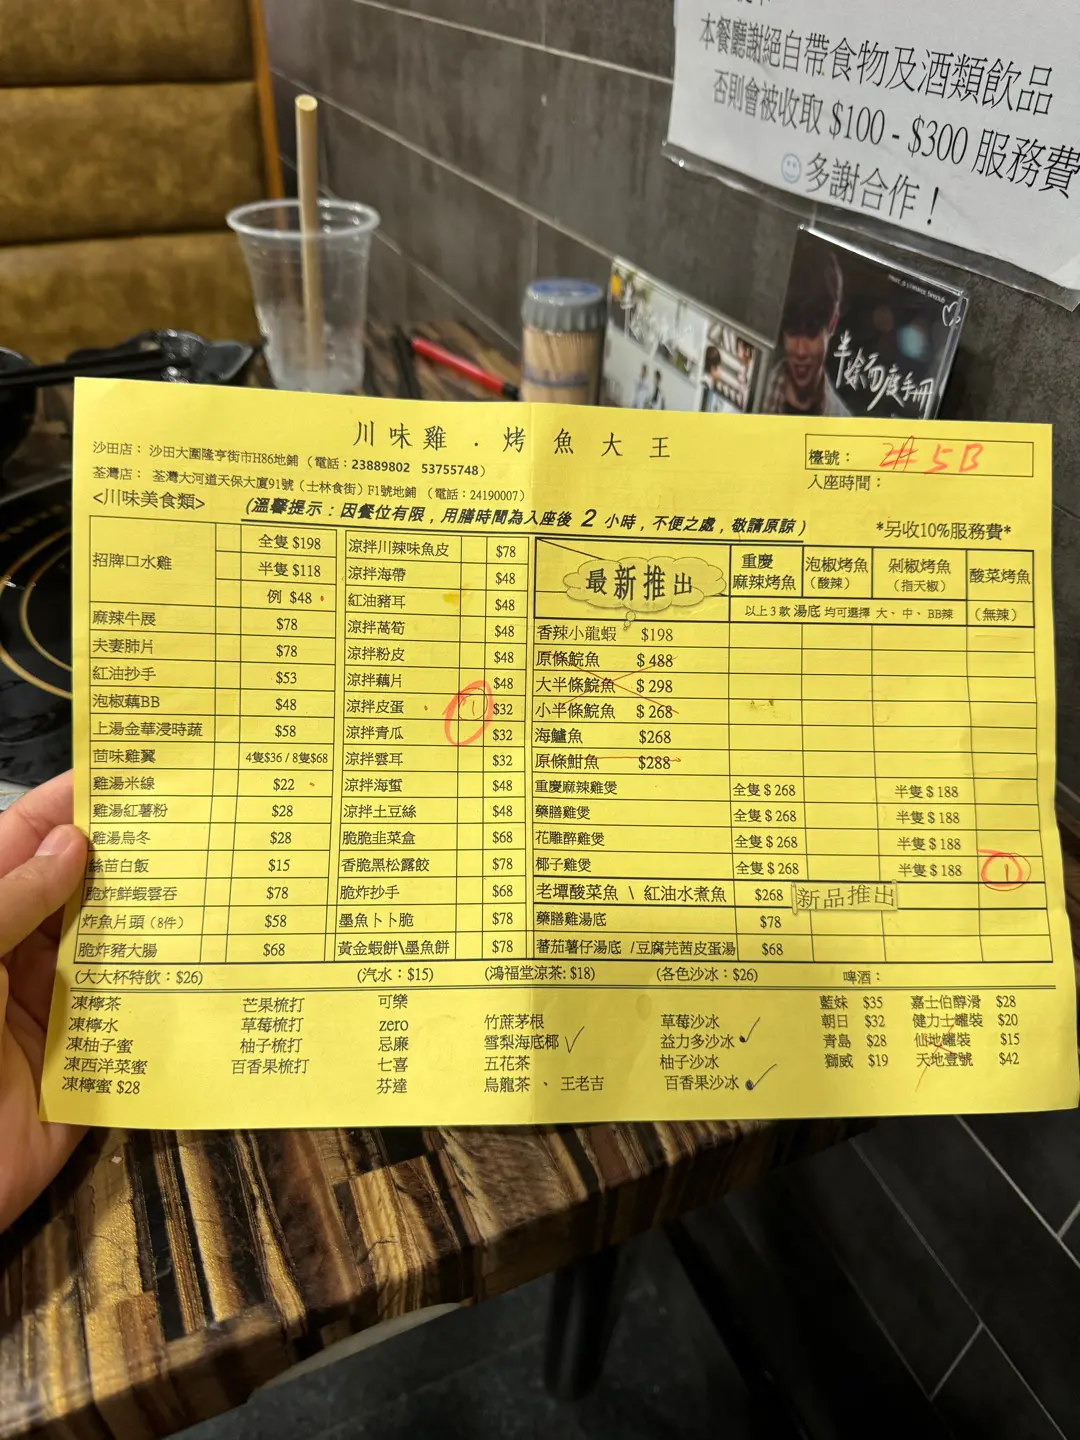 本餐廳謝絕自帶食物及酒類飲品
否則會被收取 $100 - $300 服務費
多謝合作！
半途而廢手冊
川味雞．烤魚大王
沙田店： 沙田大圍隆亨街市H86地鋪 （電話：23889802 53755748）
荃灣店： 荃灣大河道天保大廈91號（士林食街）F1號地鋪 （電話：24190007）
檯號： #5B
入座時間：
<川味美食類>
(溫馨提示：因餐位有限，用膳時間為入座後 2 小時，不便之處，敬請原諒)
*另收10%服務費*
招牌口水雞 全隻 $198
半隻 $118
例 $48
麻辣牛展 $78
夫妻肺片 $78
紅油抄手 $53
泡椒藕BB $48
上湯金華浸時蔬 $58
茴味雞翼 4隻$36 / 8隻$68
雞湯米線 $22
雞湯紅薯粉 $28
雞湯烏冬 $28
絲苗白飯 $15
脆炸鮮蝦雲吞 $78
炸魚片頭（8件） $58
脆炸豬大腸 $68
涼拌川辣味魚皮 $78
涼拌海帶 $48
紅油豬耳 $48
涼拌萵筍 $48
涼拌粉皮 $48
涼拌藕片 $48
涼拌皮蛋 1 $32
涼拌青瓜 $32
涼拌雲耳 $32
涼拌海蜇 $48
涼拌土豆絲 $48
脆脆韭菜盒 $68
香脆黑松露餃 $78
脆炸抄手 $68
墨魚卜卜脆 $78
黃金蝦餅\墨魚餅 $78
最新推出
重慶麻辣烤魚 泡椒烤魚（酸辣） 剁椒烤魚（指天椒） 酸菜烤魚
以上3款 湯底 均可選擇 大、中、BB辣 （無辣）
香辣小龍蝦 $198
原條鯇魚 $488
大半條鯇魚 $298
小半條鯇魚 $268
海鱸魚 $268
原條鮒魚 $288
重慶麻辣雞煲 全隻 $268 半隻 $188
藥膳雞煲 全隻 $268 半隻 $188
花雕醉雞煲 全隻 $268 半隻 $188
椰子雞煲 全隻 $268 半隻 $188 1
老壇酸菜魚 \ 紅油水煮魚 $268 新品推出
藥膳雞湯底 $78
蕃茄薯仔湯底 /豆腐芫茜皮蛋湯 $68
(大大杯特飲：$26)
凍檸茶
凍檸水
凍柚子蜜
凍西洋菜蜜
凍檸蜜 $28
芒果梳打
草莓梳打
柚子梳打
百香果梳打
(汽水：$15)
可樂
zero
忌廉
七喜
芬達
(鴻福堂涼茶: $18)
竹蔗茅根
雪梨海底椰
五花茶
烏龍茶 、 王老吉
(各色沙冰：$26)
草莓沙冰
益力多沙冰
柚子沙冰
百香果沙冰
啤酒：
藍妹 $35 嘉士伯醇滑 $28
朝日 $32 健力士罐裝 $20
青島 $28 仙地罐裝 $15
獅威 $19 天地壹號 $42